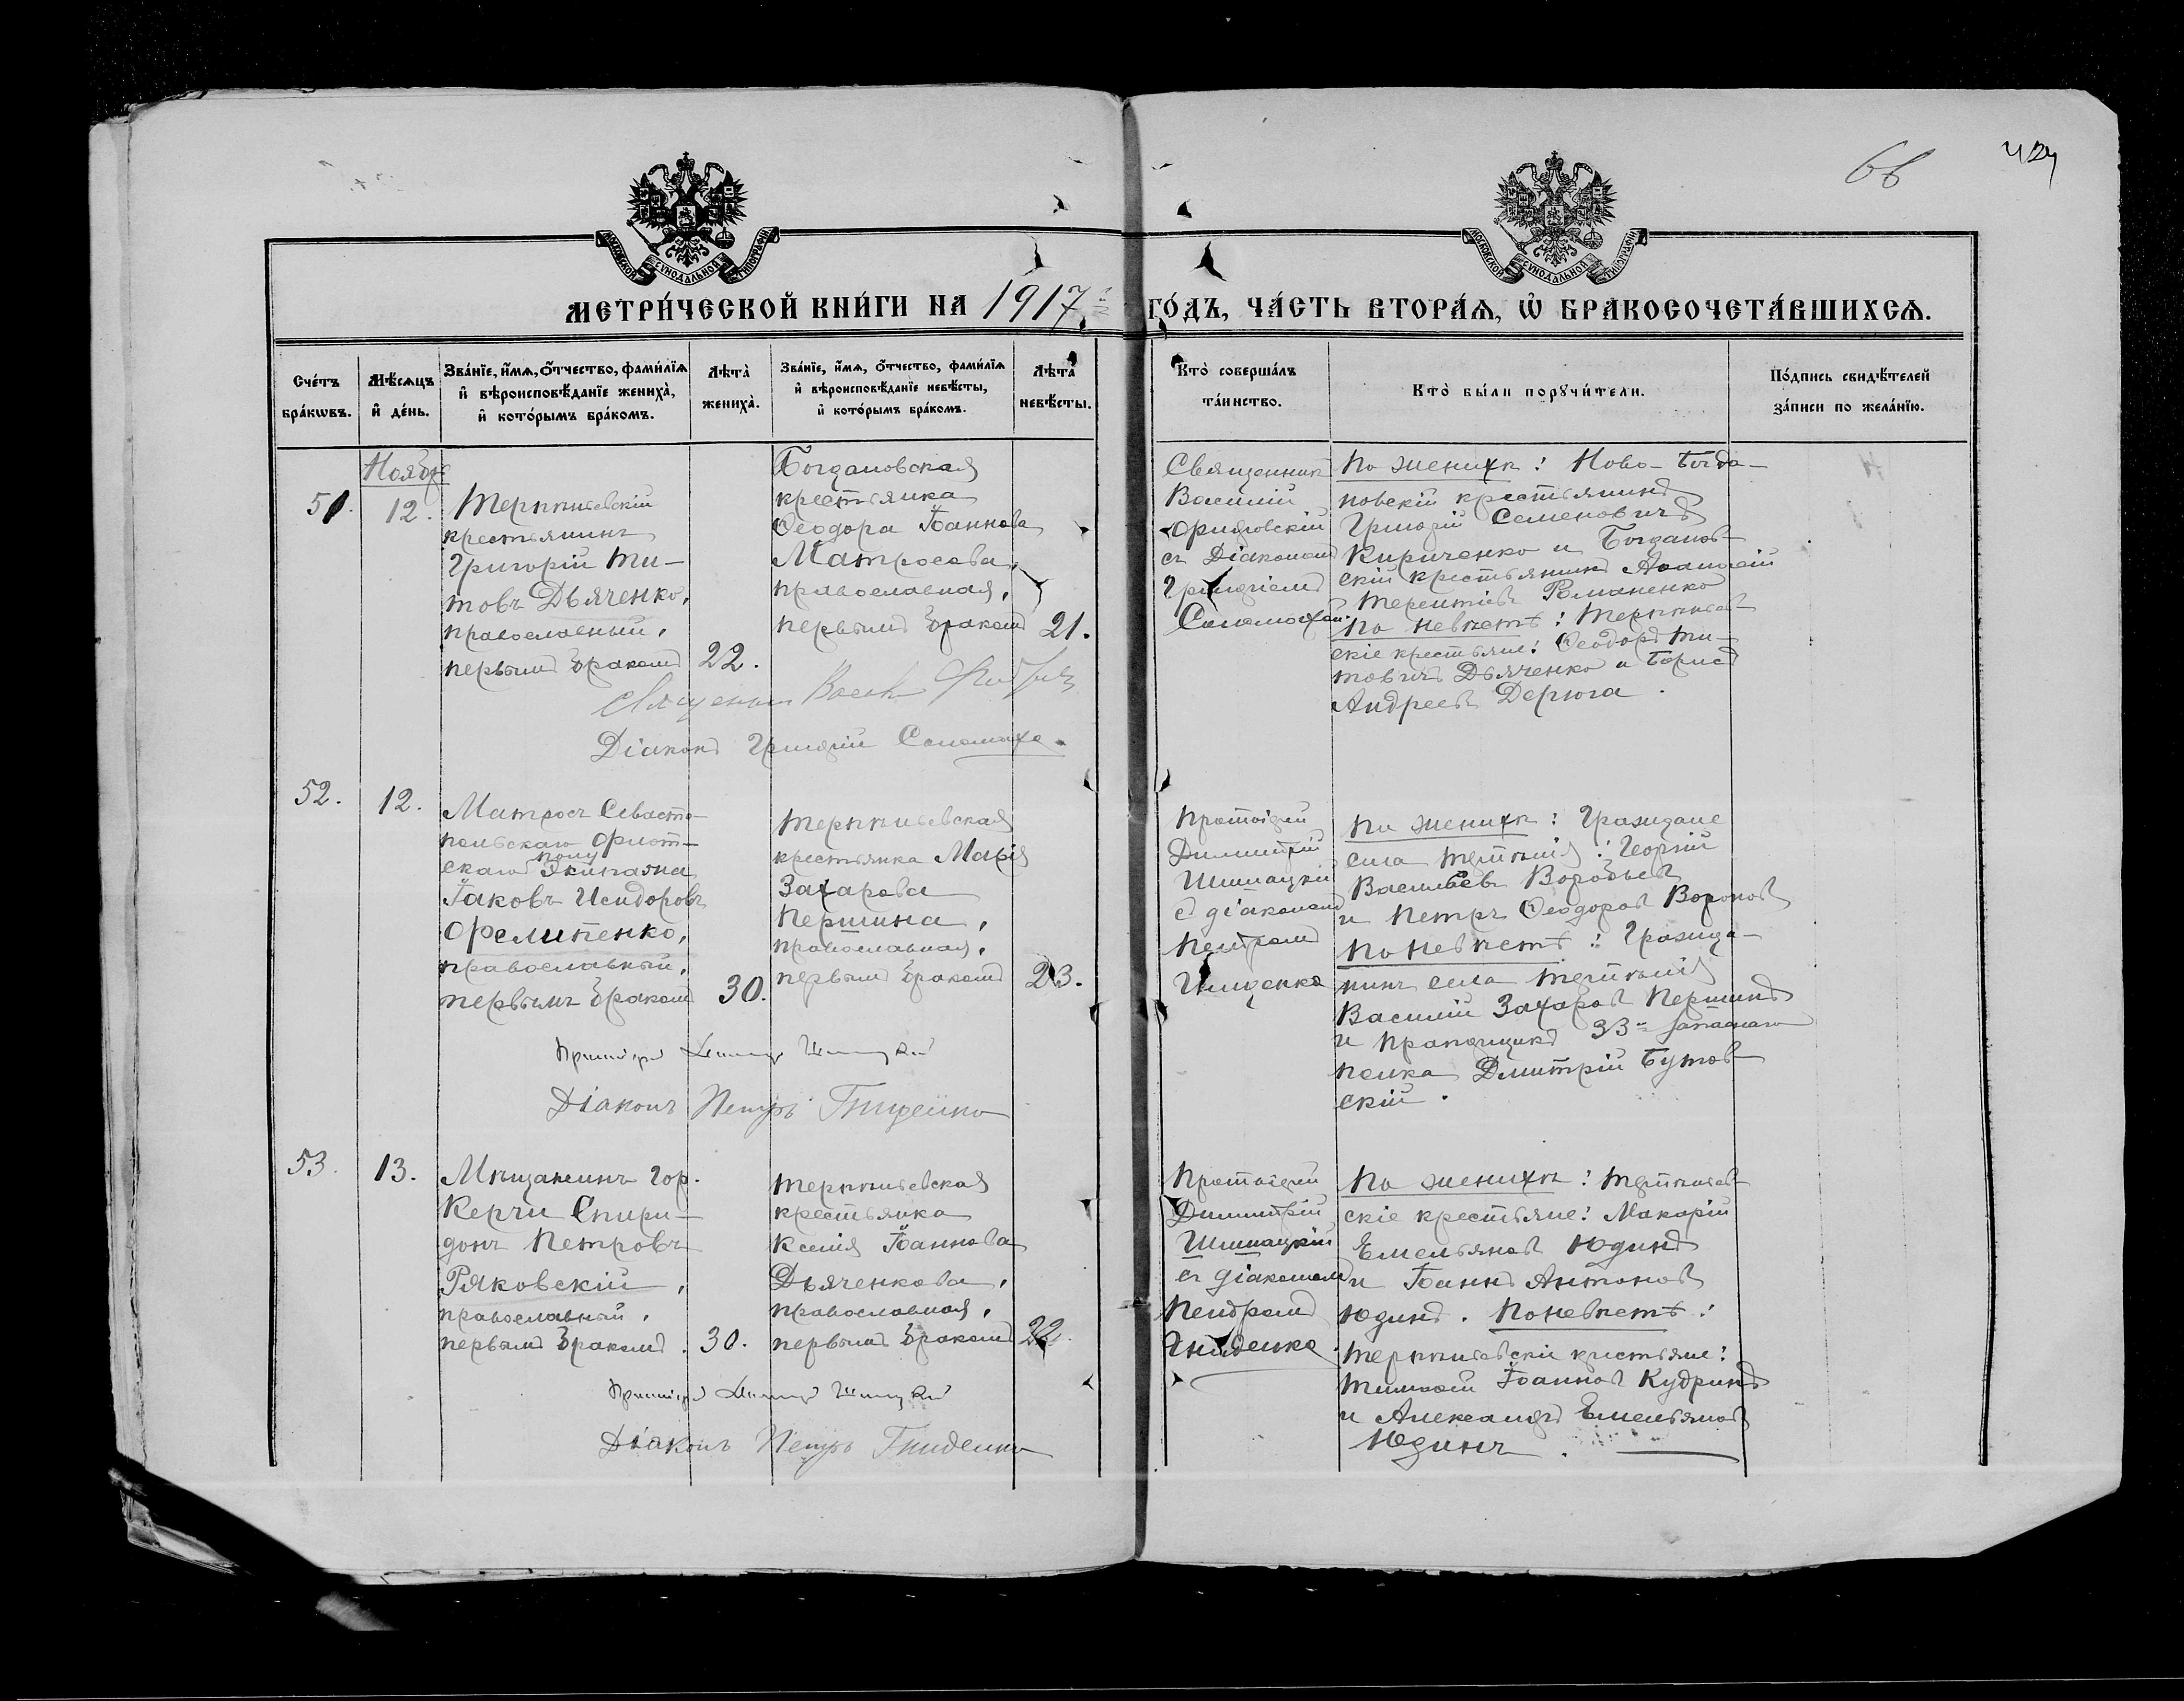 66
МЕТРИ́ЧЕСКОЙ КНИ́ГИ НА 1917 ГО́ДЪ, ЧА́СТЬ ВТОРА́Я, Ѡ҆ БРАКОСОЧЕТА́ВШИХСЯ.
МОСКОВСКОЙ СѴНОДАЛЬНОЙ ТИПОГРАФІИ
МОСКОВСКОЙ СѴНОДАЛЬНОЙ ТИПОГРАФІИ
Сче́тъ бра́кѡвъ.
Мѣ́сяцъ и҆ де́нь.
Зва́нїе, и҆́мя, ѻ҆́тчество, фами́лїя
и҆ вѣроисповѣ́данїе жениха̀,
и҆ кото́рымъ бра́комъ.
Лѣта̀ жениха̀.
Зва́нїе, и҆́мя, ѻ҆́тчество, фами́лїя
и҆ вѣроисповѣ́данїе невѣ́сты,
и҆ кото́рымъ бра́комъ.
Лѣта̀ невѣ́сты.
Кто̀ соверша́лъ
та́инство.
Кто̀ бы́ли порꙋчи́тели.
По́дпись свидѣ́телей
за́писи по жела́нїю.
51.
Ноябр
12.
Терпѣніевскій
крестьянинъ
Григорій Ти-
товъ Дьяченко,
православный,
первымъ бракомъ
22.
Богдановская
крестьянка
Ѳеодора Іоаннова
Матросова,
православная,
первымъ бракомъ
21.
Священникъ
Василій
съ Діакономъ
Григоріемъ
Соломохой
По женихѣ: Ново-Богда-
новскій крестьянинъ
Григорій Семеновичъ
Кириченко и Богданов-
скій крестьянинъ Аѳанасій
Терентіевъ Романенко
По невѣстѣ: Терпѣніев-
скіе крестьяне: Ѳеодоръ Ти-
товичъ Дьяченко и Борисъ
Андреевъ Дерюга.
Діаконъ Григорій Соломоха.
52.
12.
Матросъ Севасто-
польскаго Флот-
скаго полу Экипажа
Іаковъ Исидоровъ
Фелипенко,
православный,
первымъ бракомъ
30.
Терпѣніевская
крестьянка Марія
Захарова
Першина,
православная,
первымъ бракомъ
23.
Протоіерей
Димитрій
Шпицкій
съ діакономъ
Петромъ
По женихѣ: Граждане
села Терпѣнія: Георгій
Васильевъ Воробьевъ
и Петръ Ѳеодоровъ Вороновъ
По невѣстѣ: Гражда-
нинъ села Терпѣнія
Василій Захаровъ Першинъ
и Прапорщикъ 33го запаснаго
полка Дмитрій Бутов-
скій.
Діаконъ Петръ
53.
13.
Мѣщанинъ гор.
Керчи Спири-
донъ Петровъ
Ряковскій,
православный,
первымъ бракомъ.
30.
Терпѣніевская
крестьянка
Ксенія Іоаннова
Дьяченкова,
православная,
первымъ бракомъ
22.
Протоіерей
Димитрій
съ діакономъ
Петромъ
Гниденко.
По женихѣ: Терпѣніев-
скіе крестьяне: Макарій
Емельяновъ Юдинъ
и Іоаннъ Антоновъ
Юдинъ. По невѣстѣ:
Терпѣніевскіе крестьяне:
Тимоѳей Іоанновъ Кудринъ
и Александръ Емельяновъ
Юдинъ.
Діаконъ Петръ Гниденко